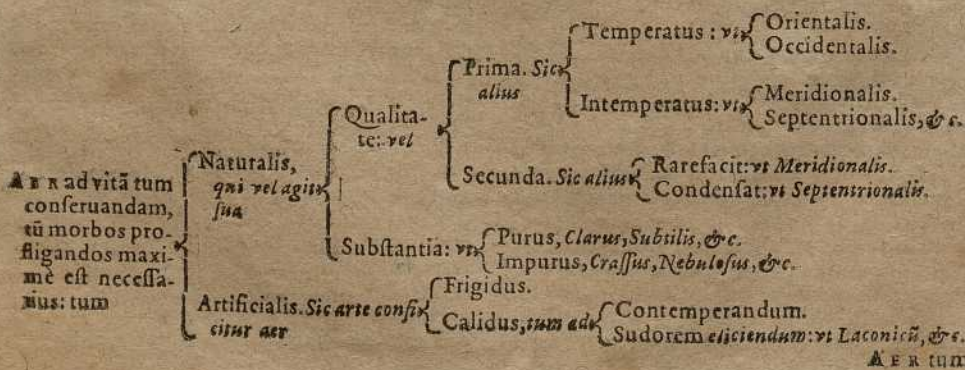 AER ad vitã tum
conſeruandam,
tũ morbos pro-
fligandos maxi-
mè eſt neceſſa-
rius: tum
Naturalis,
qui vel agit
ſua
Qualita-
te: vel
Prima. Sic
alius
Temperatus: vt
Orientalis.
Occidentalis.
Intemperatus: vt
Meridionalis.
Septentrionalis, &c.
Secunda. Sic alius
Rarefacit: vt Meridionalis.
Condenſat: vt Septentrionalis.
Subſtantia: vt
Purus, Clarus, Subtilis, &c.
Impurus, Craſſus, Nebuloſus, &c.
Artificialis. Sic arte confi-
citur aer
Frigidus.
Calidus, tum ad
Contemperandum.
Sudorem eliciendum: vt Laconicũ, &c.
AER tum